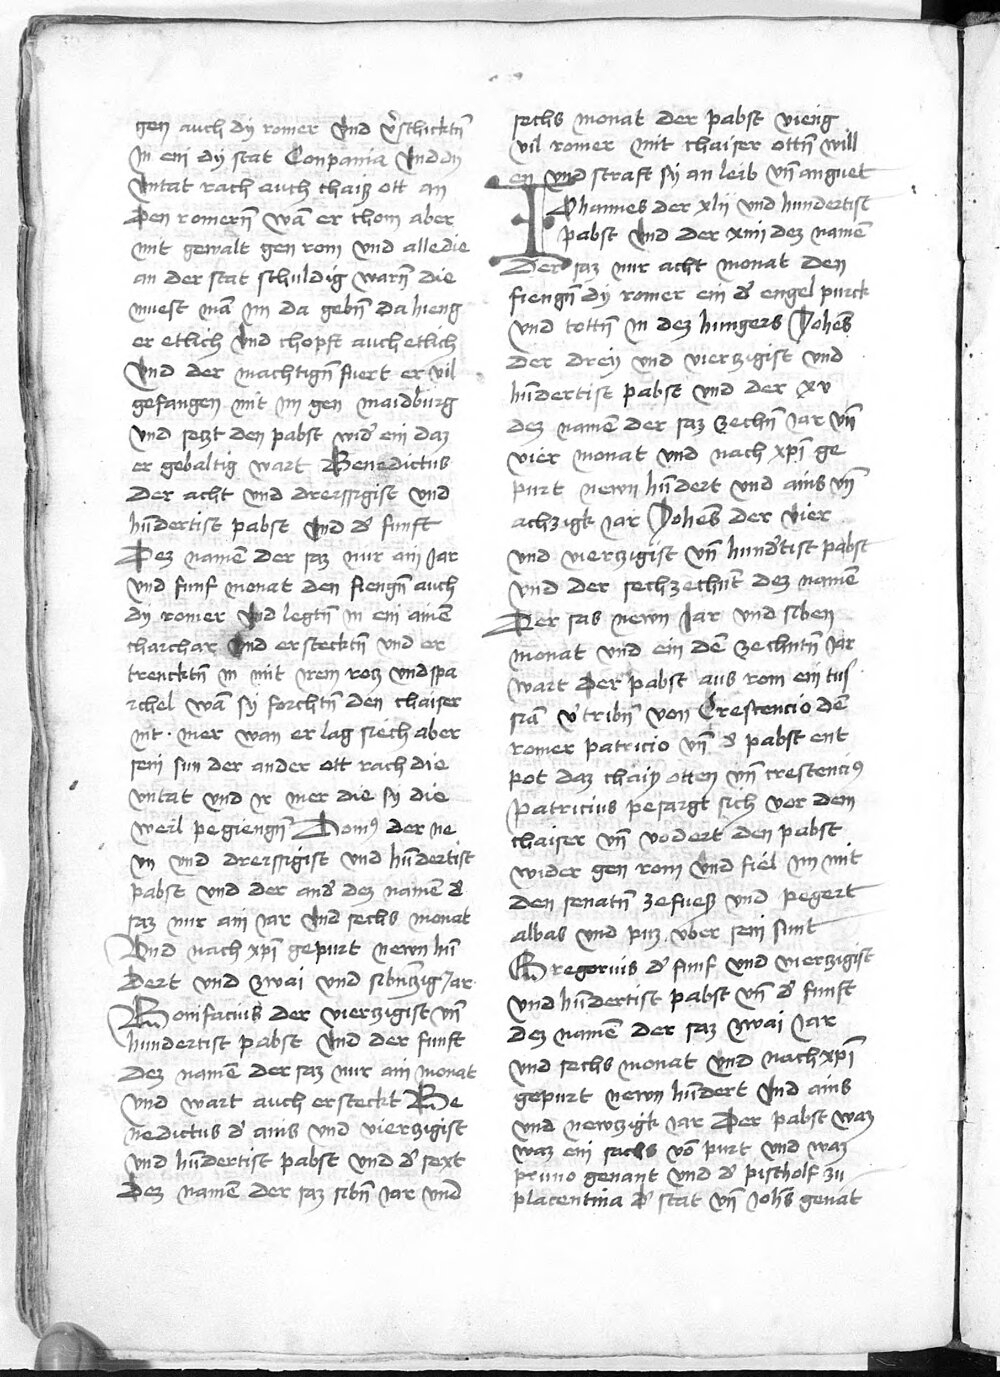 gen auch dy romer vnd v̾schicktn̄
In ein dy stat Conpania vnd dy
vntat rach auch chaiß ott an
Den romern̄ wan̄ er chom aber
mit gewalt gen rom vnd alle die
an der stat schuldig warn̄ die
muest man̄ im da gebn̄ da hieng
er etlich vnd chopft auch etlich
vnd der machtign̄ fuert er vil
gefangen mit im gen maidburg
vnd setzt den pabst wid̾ ein daz
er gebaltig wart Benedictus
Der acht vnd dreissigist vnd
hūdertist pabst vnd d̾ funft
Dez namē der saz nur ain Jar
vnd funf monat den fiengn̄ auch
dy romer vnd legtn̄ in ein ainē
charchar vnd erstecktn̄ vnd er
trencktn̄ in mit irem rotz vnd spa
ichel wan̄ sy forchtn̄ den chaiser
nit mer wan er lag siech aber
sein sun der ander ott rach die
vntat vnd ir mer die sy die
weil pegiengn̄ Domꝰ der ne
vn vnd dreissigist vnd hūdertist
pabst vnd der and̾ dez namē d̾
saz nur ain iar vnd sechs monat
Vnd nach xp̄i gepurt newn hū
Dert vnd zwai vnd sibnczig Jar
Bonifacius der vierczigist vn̄
hundertist pabst vnd der funft
Dez namē der saz nur ain monat
vnd wart auch ersteckt Be
nedictus d̾ ains vnd vierczigist
vnd hūdertist pabst vnd d̾ sext
Dez namē der saz sibn̄ iar vnd
sechs monat der pabst vieng
vil romer mit chaiser ottn̄ will
en vnd straft sy an leib vn̄ an guet
Johannes der xlii vnd hundertist
pabst vnd der xiiii dez namē
Der saz nur acht monat den
fiengn̄ dy romer ein d̾ engelpurck
vnd tottn̄ in dez hungers Johēs
der drey vnd vierczigist vnd
hūdertist pabst vnd der xv
dez namē der saz zechn̄ iar vn̄
vier monat vnd nach xp̄i ge
purt newn hūdert vnd ains vn̄
achzigk iar Johēs der vier
vnd vierczigist vn̄ hund̾tist pabst
vnd der sechzechn̄t dez namē
Der sas newn Jar vnd siben
monat vnd ein dē zechntn̄ iar
wart der pabst aus rom ein tus
sian̄ v̾tribn̄ von Crestencio dē
romer patricio vn̄ d̾ pabst ent
pot daz chaiß otten vn̄ crestenciꝰ
Patricius pesargt sich vor dem
chaiser vn̄ vodert den pabst
wider gen rom vnd fiel im mit
den senatn̄ ze fuess vnd pegert
ablas vnd puz vber sein sunt
Gregorius d̾ funf vnd vierczigist
vnd hūdertist pabst vn̄ d̾ funft
dez namē der saz zwai Jar
vnd sechs monat vnd nach xp̄i
gepurt newn hūdert vnd ains
vnd newzigk iar Der pabst waz
waz ein sachs vō purt vnd waz
pruno genant vnd d̾ pischolf zu
placentina d̾ stat vn̄ Johs̄ genāt